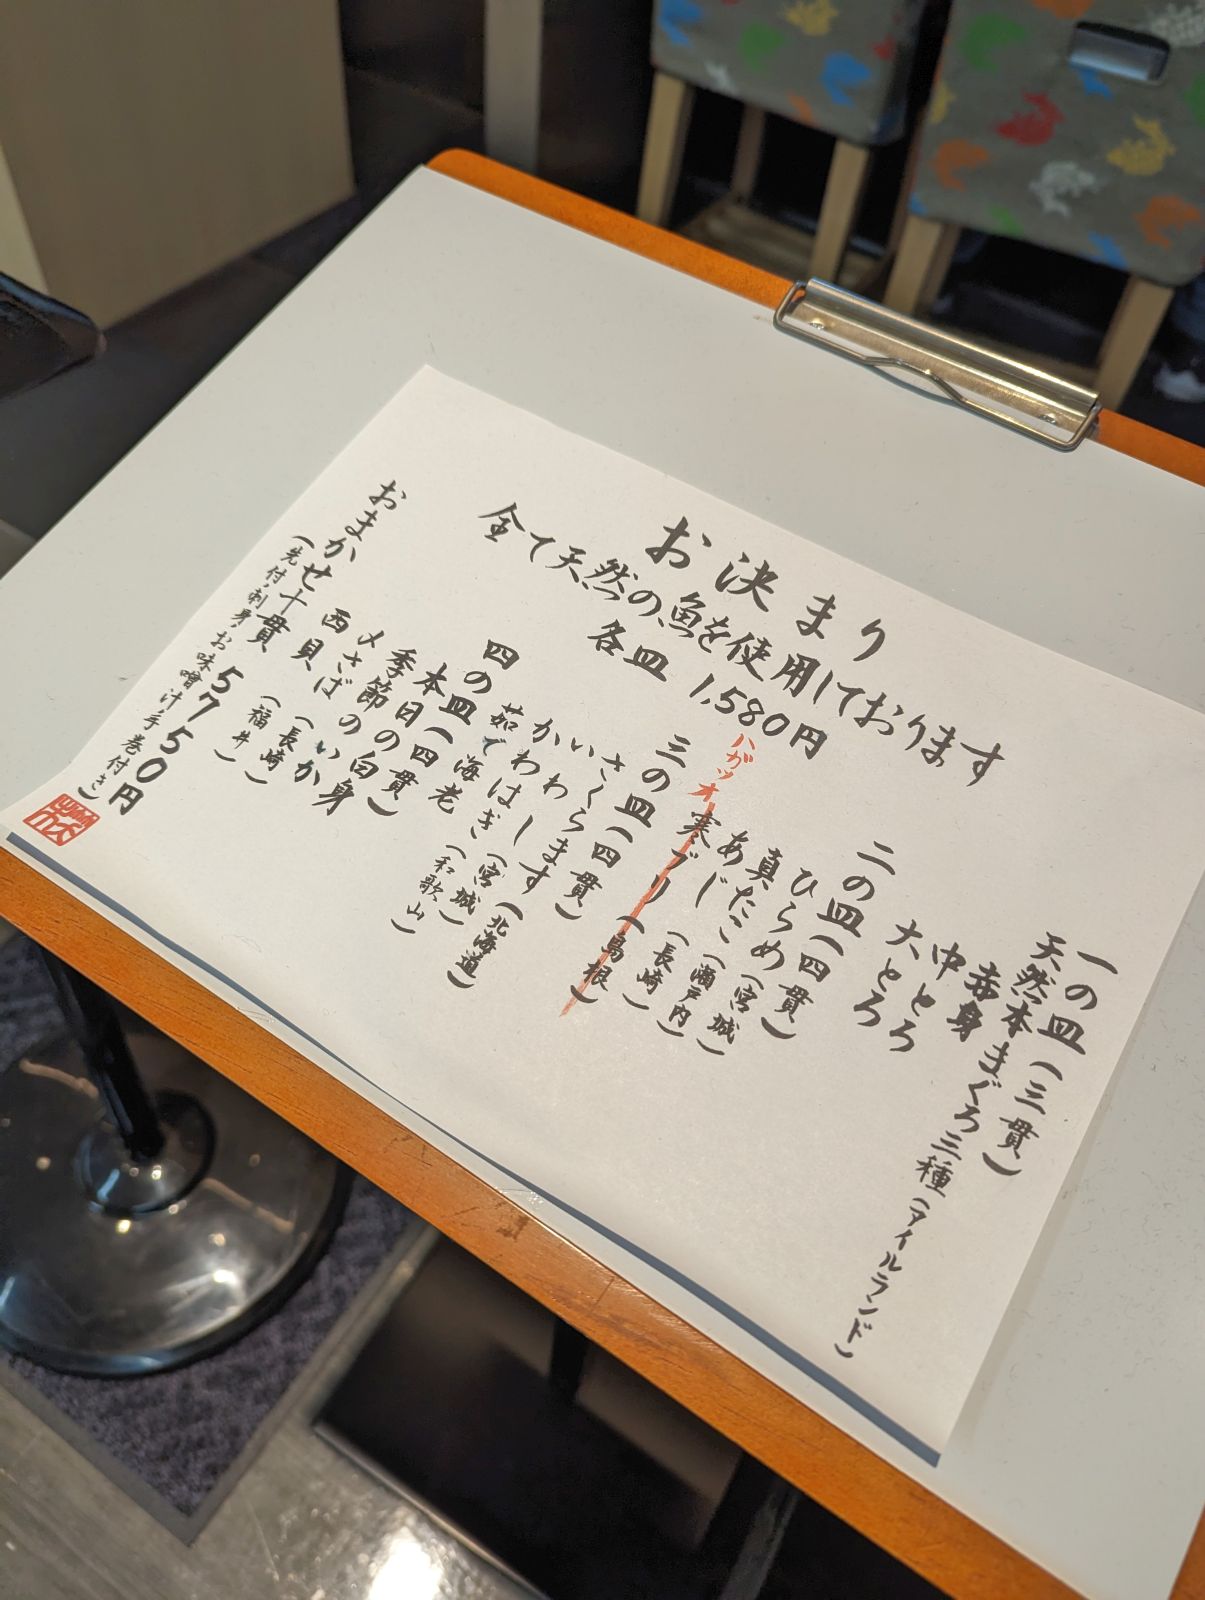 お決まり
全て天然の魚を使用しております
各皿 1,580円
一の皿(三貫)
天然本まぐろ三種(アイルランド)
赤身
中とろ
大とろ
二の皿(四貫)
ひらめ(宮城)
真だこ(瀬戸内)
あじ(長崎)
寒ブリ(島根)
ハガツオ
三の皿(四貫)
さくらます(北海道)
いわし(宮城)
かわはぎ(和歌山)
茹で海老
四の皿(四貫)
本日の白身
季節のいか
〆さば(長崎)
西貝(福井)
おまかせ十貫 5750円
(先付・刺身・お味噌汁・手巻付き)